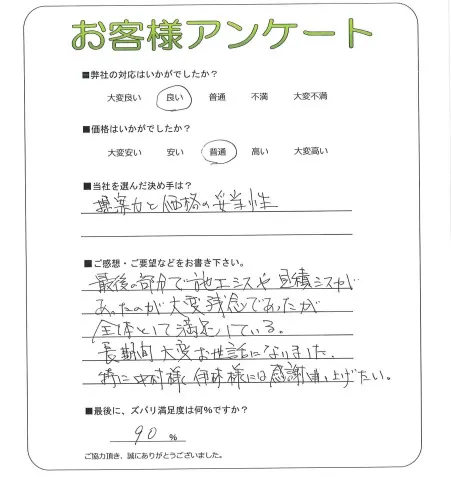 お客様アンケート
■弊社の対応はいかがでしたか？
大変良い 良い 普通 不満 大変不満
■価格はいかがでしたか？
大変安い 安い 普通 高い 大変高い
■当社を選んだ決め手は？
提案力と価格の妥当性
■ご感想・ご要望などをお書き下さい。
最後の部分で施工ミスや見積ミスが
あったのが大変残念であったが
全体として満足している。
長期間大変お世話になりました．
特に中村様、伊藤様には感謝申し上げたい。
■最後に、ズバリ満足度は何％ですか？
90 ％
ご協力頂き、誠にありがとうございました。